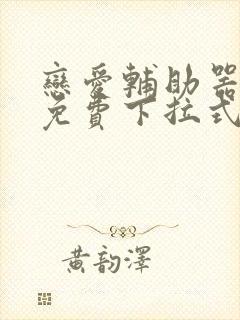 戀愛輔助器
免費下拉式
黃韵澤